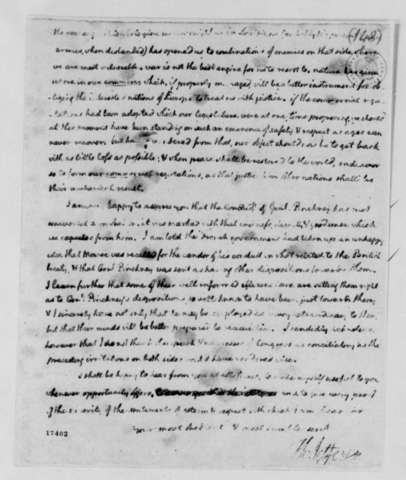 (142)
armies, when disbanded) has opened us to combinations of enemies on that side where
we are most vulnerable. war is not the best engine for us to resort to, nature has given
us one in our commerce which, if properly managed, will be a better instrument for ob-
liging the interested nations of Europe to treat us with justice. if the commercial regu-
lations had been adopted which our legislature were at one time proposing, we should
at this moment have been standing on such an eminence of safety & respect as ages can
never recover. but having wandered from that, our object should now be to get back
with as little loss as possible, & when peace shall be restored to the world, endeavor
so to form our commercial regulations, as that justice from other nations shall be
their mechanical result.
I am happy to assure you that the conduct of Genl. Pinckney has met
universal approbation. it was marked with that coolness, dignity, & good sense which
we expected from him. I am told the French government had taken up an unhappy
idea that Monroe was recalled for the candor of his conduct in what related to the British
treaty, & that Genl. Pinckney was sent as having other dispositions towards them.
I learn further that some of their well informed citizens here are setting them right
as to Genl. Pinckney's dispositions, so well known to have been just towards them;
& I sincerely hope not only that he may be employed as envoy extraordinary to them,
but that their minds will be better prepared to receive him. I candidly acknolege
however that I do not think the speech & addresses of Congress as conciliatory as the
preceding irritations on both sides would have rendered wise.
I shall be happy to hear from you at all times, to make myself useful to you
whenever opportunity offers, and to give every proof
of the sincerity of the sentiments of esteem & respect with which I am Dear Sir
Your most obedient & most humble servt
Th: Jefferson
17402